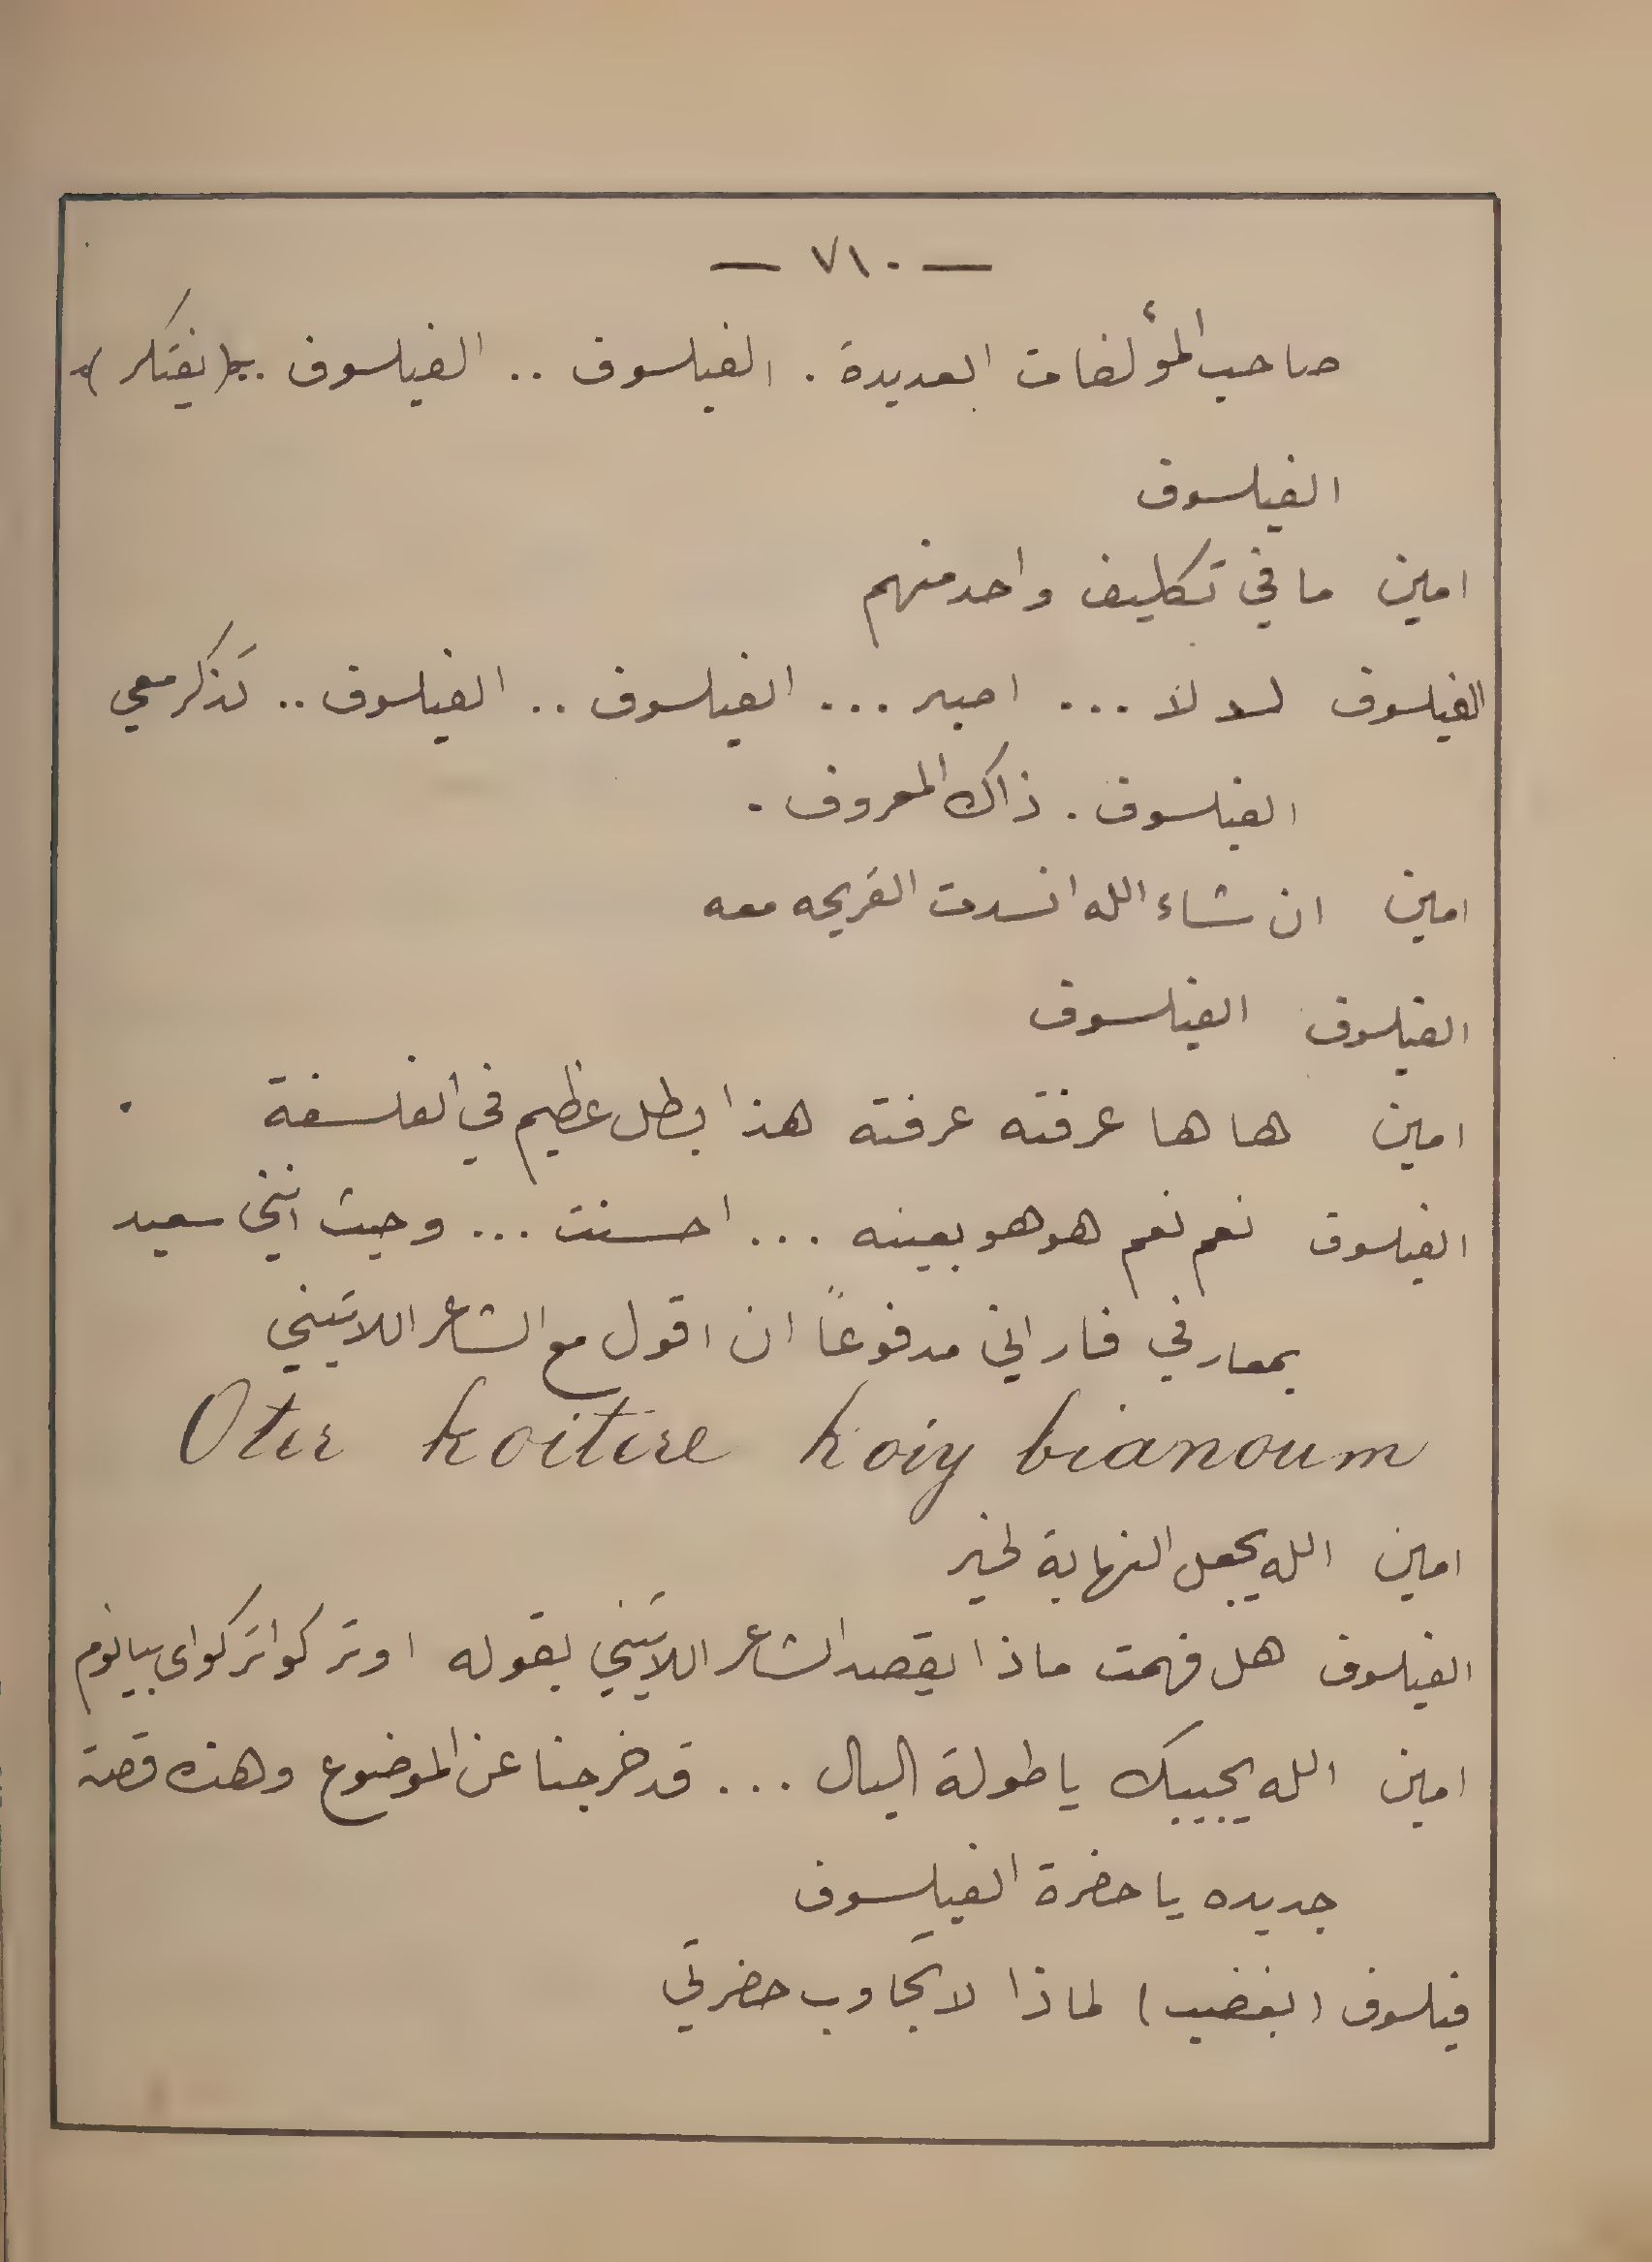 — ٧١٠ —
صاحب المؤلفات العديدة . الفيلسوف .. الفيلسوف .. (يفتكر)
الفيلسوف
امين ما في تكليف واحد منهم
الفيلسوف لا لا ... اصبر ... الفيلسوف .. الفيلسوف .. تذكر معي
الفيلسوف . ذاك المعروف .
امين ان شاء الله انسدت القريحه معه
الفيلسوف الفيلسوف
امين ها ها عرفته عرفته هذا بطل عظيم في الفلسفة .
الفيلسوف نعم نعم هو هو بعينه ... احسنت ... وحيث انني سعيد
بمعارفي فاراني مدفوعاً ان اقول مع الشاعر اللاتيني
Oter koitere koiy bianoum
امين الله يجعل النهاية لخير
الفيلسوف هل فهمت ماذا يقصد الشاعر اللاتيني بقوله اوتر كواتر كواي بيانوم
امين الله يجيبك يا طولة البال ... قد خرجنا عن الموضوع وهذه قصة
جديده يا حضرة الفيلسوف
فيلسوف (بغضب) لماذا لا تجاوب حضرتي